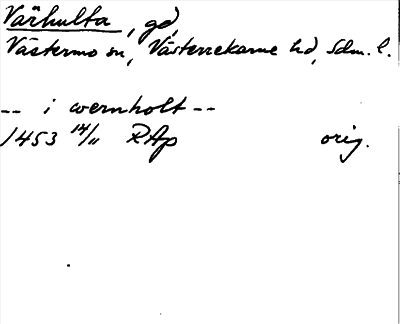 Värhulta, gd,
Västermo sn, Västerrekarne hd, Sdm. l.
-- i wernholt --
1453 14/11 RAp orig.